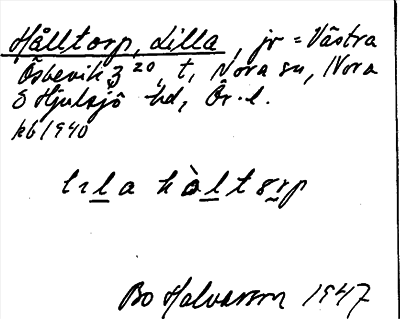 Hålltorp, Lilla, jr = Västra
Ösbevik 3 20, t, Nora sn, Nora
o Hjulsjö hd, Ör. l.
kb 1940
lılla hàltorp
Bo Halvarson 1947